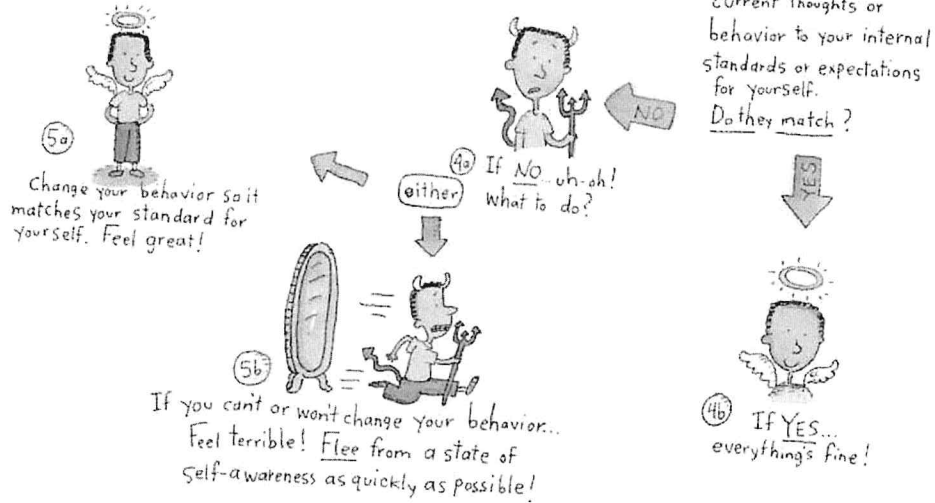 current thoughts or
behavior to your internal
standards or expectations
for yourself.
Do they match?
NO
YES
4a If NO... uh-oh!
What to do?
either
5a
Change your behavior so it
matches your standard for
yourself. Feel great!
5b
If you can't or won't change your behavior...
Feel terrible! Flee from a state of
self-awareness as quickly as possible!
4b If YES...
everything's fine!